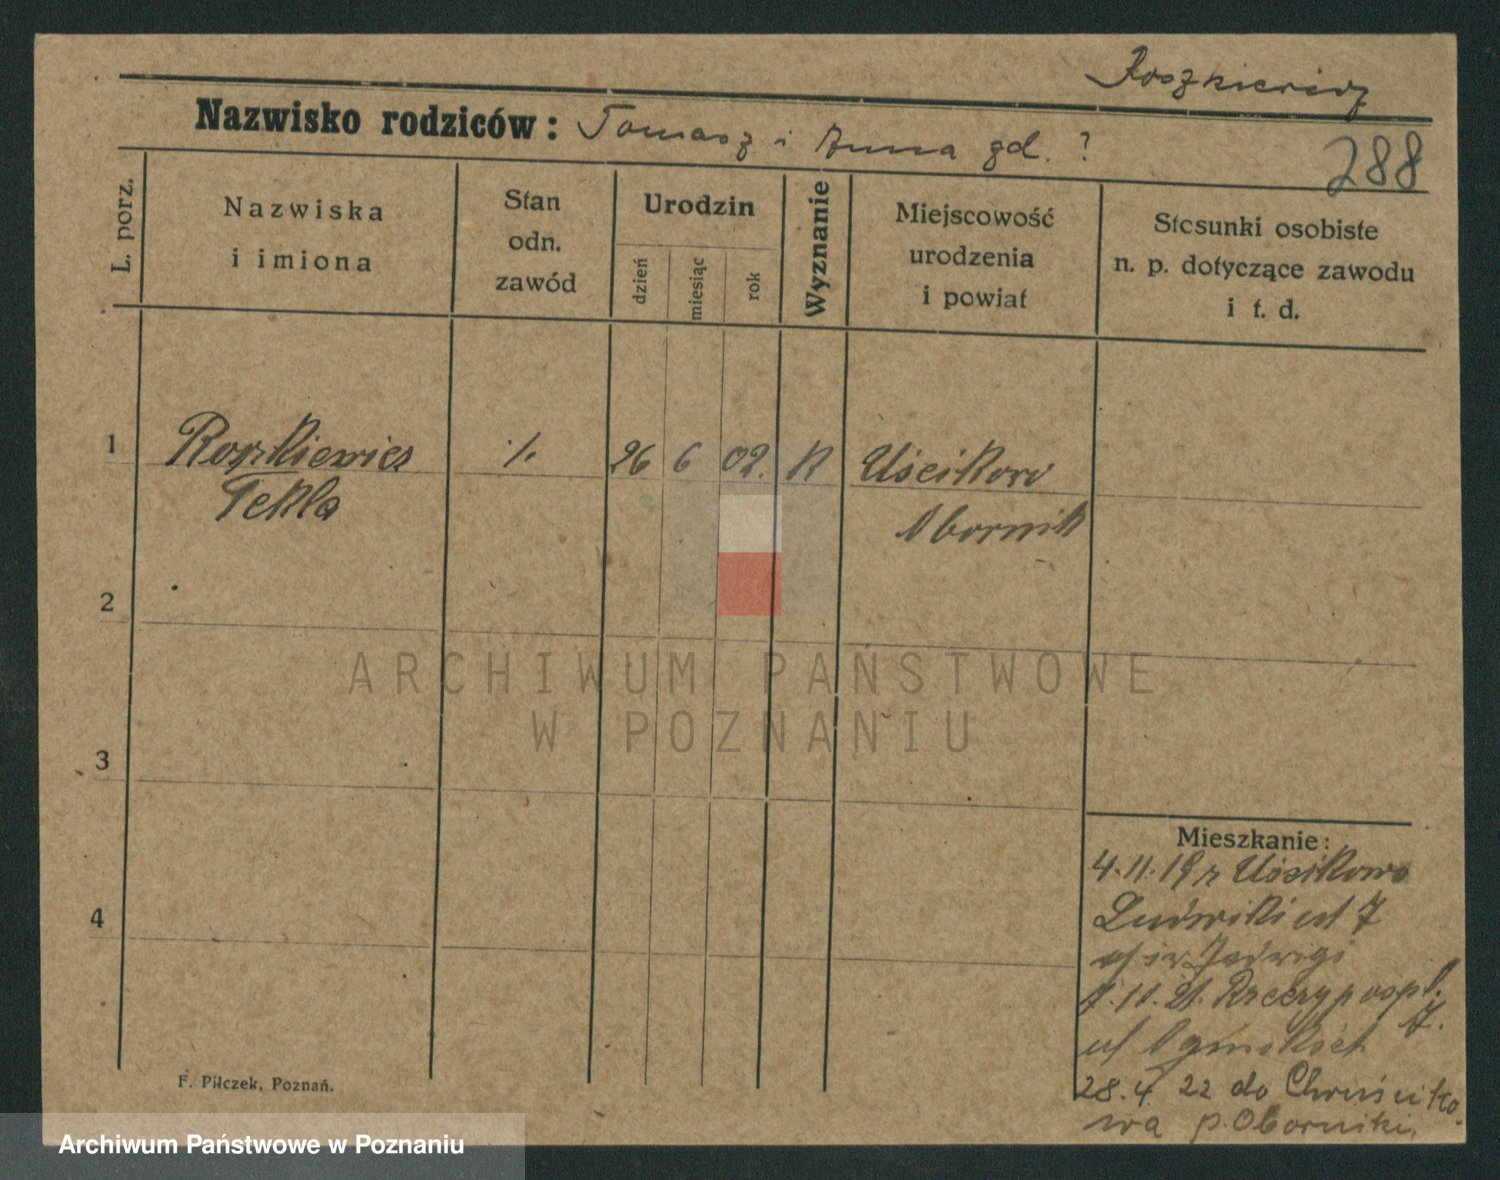 Roszkiewicz
Nazwisko rodziców: Tomasz i Anna gd. ?
288
L. porz.
Nazwiska
i imiona
Stan
odn.
zawód
Urodzin
dzień
miesiąc
rok
Wyznanie
Miejscowość
urodzenia
i powiat
Stosunki osobiste
n. p. dotyczące zawodu
i t. d.
1
Roszkiewicz
Tekla
·/.
26
6
02.
K
Uścikowo
Obornik
2
ARCHIWUM PAŃSTWOWE
W POZNANIU
3
4
Mieszkanie:
4.11.19 z Uścikowo
Ludwiki 7
Jadwigi
7.11.21. Rzeczyposp.
7.
ul
28.4. 22 do Chruściko
wa p. Oborniki.
F. Pilczek, Poznań.
Archiwum Państwowe w Poznaniu